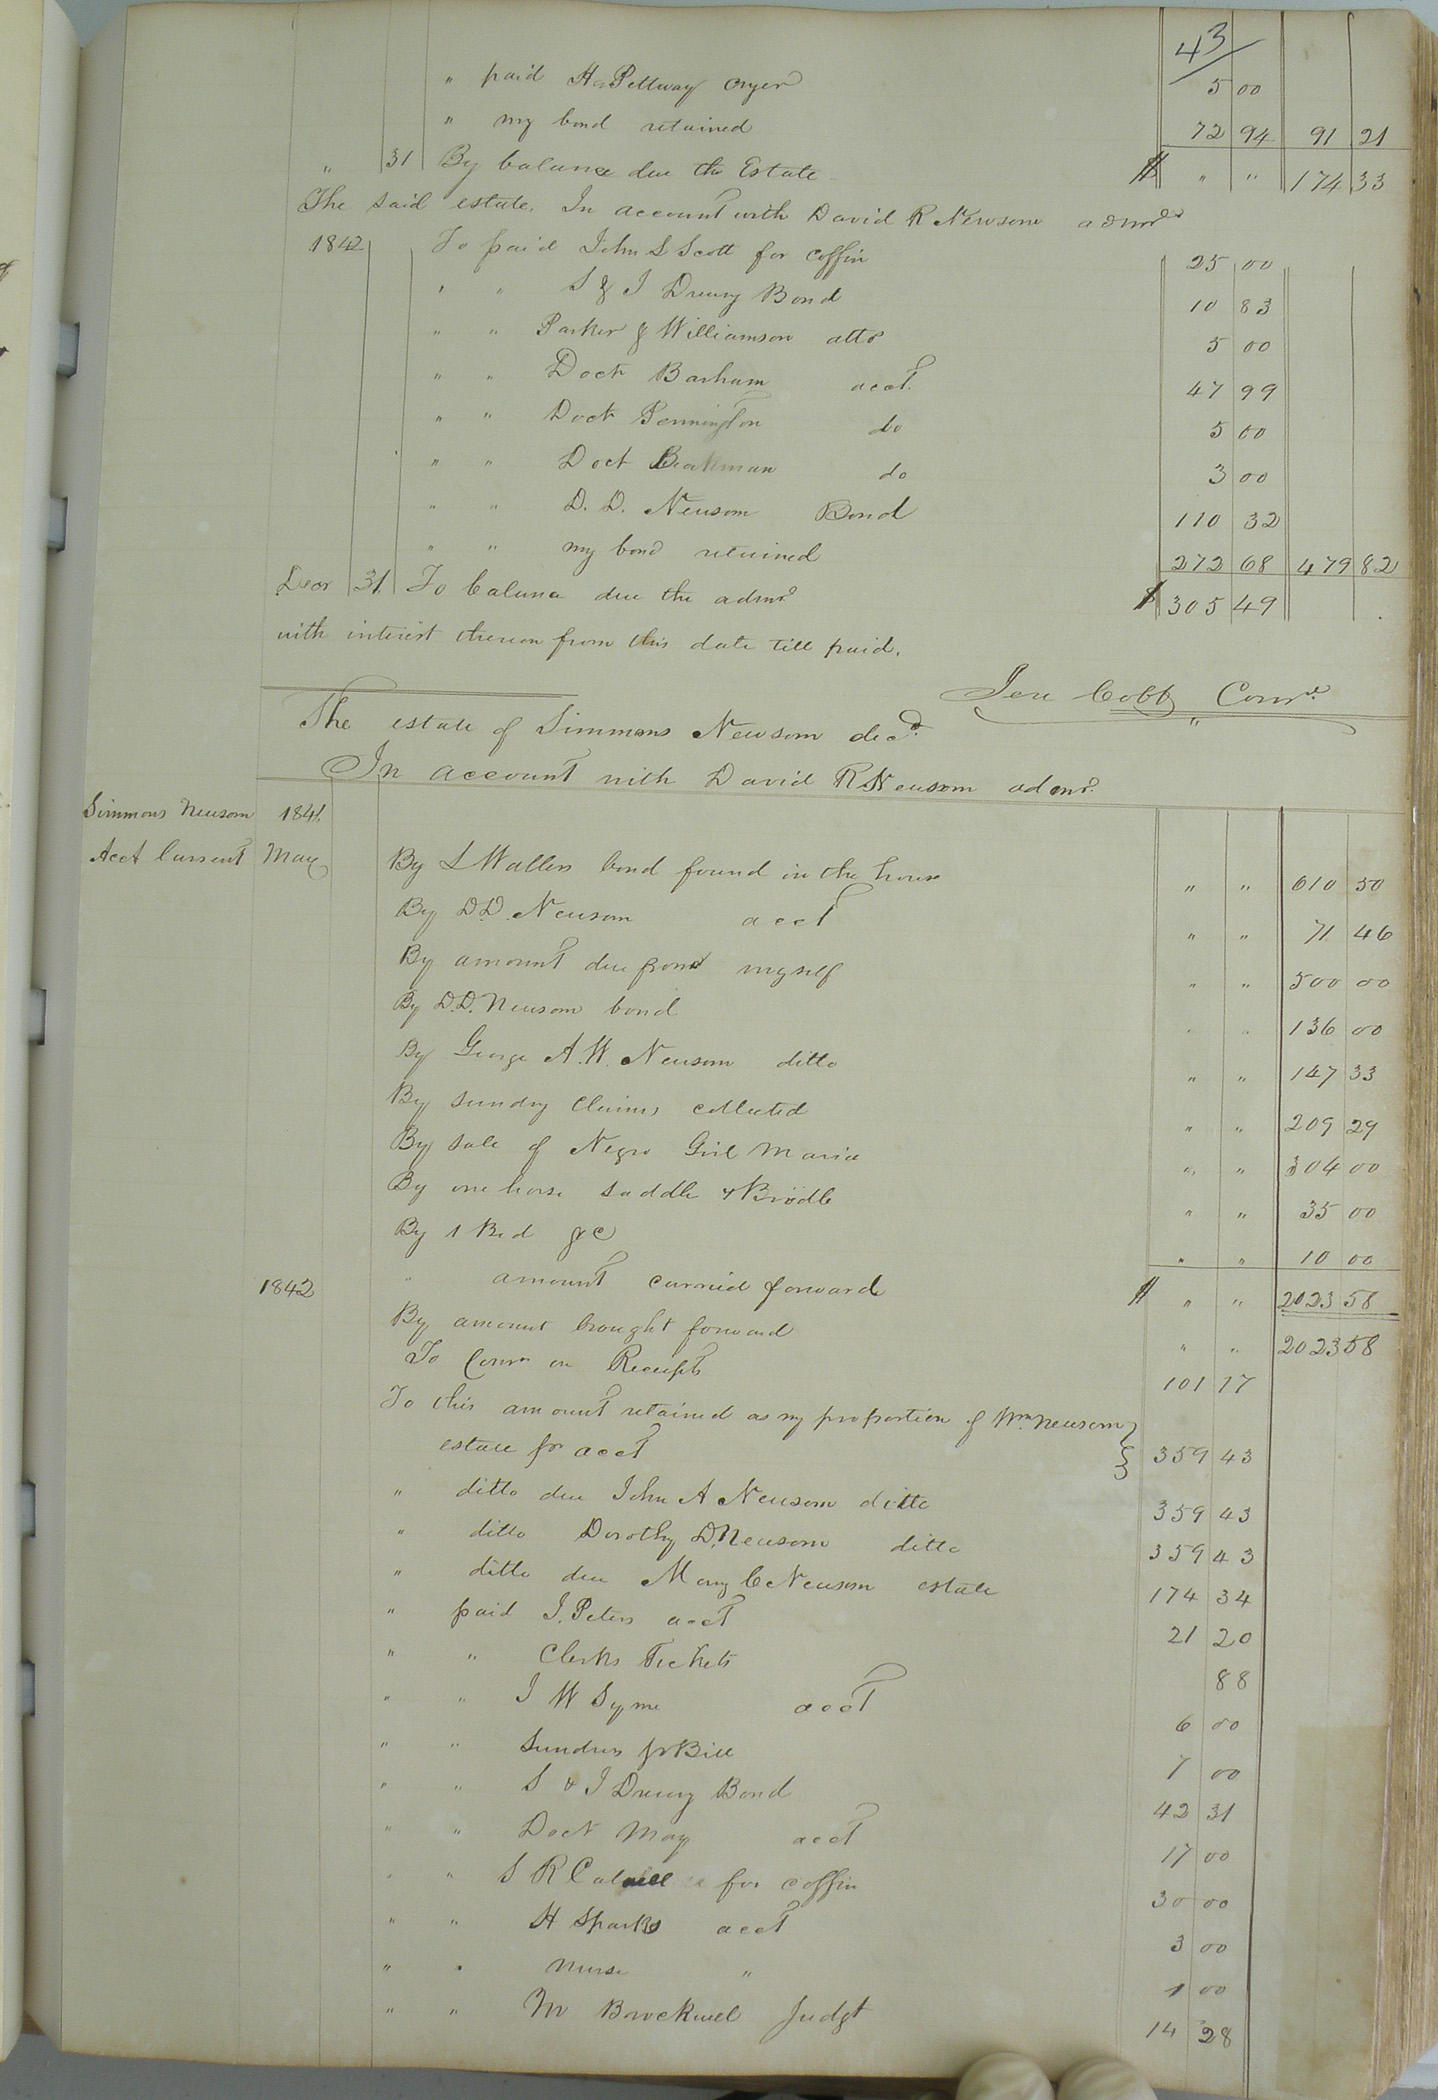 43/
" paid H Pettway Cryer 5 00
" my bond retained 72 94 91 21
" 31 By balance due the Estate $ " " 174 33
The said estate. In account with David R Newsom admr
1842 To paid John S Scott for coffin 25 00
" " S & J Drewry Bond 10 83
" " Parker & Williamson atto 5 00
" " Doct Barham acct. 47 99
" " Doct Pennington do 5 00
" " Doct do 3 00
" " D. D. Newsom Bond 110 32
" " my bond retained 272 68 479 82
Decr 31. To balance due the admr $ 305 49
with interest thereon from this date till paid.
Jere Cobb Comr
The estate of Simmons Newsom decd.
In account with David R Newsom admr.
Simmons Newsom 1841.
Acct Current May By S Wallers bond found in the house " " 610 50
By D.D. Newsom acct " " 71 46
By amount due from myself " " 500 00
By D.D. Newsom bond " " 136 00
By George A. W. Newsom ditto " " 147 33
By sundry claims collected " " 209 29
By sale of Negro Girl Maria " " 304 00
By one horse saddle & Bridle " " 35 00
By 1 Bed &C " " 10 00
1842 " amount carried forward $ " " 2023 58
By amount brought forward " " 2023 58
To Comn on Receipts 101 17
To this amount retained as my proportion of Wm. Newsom
estate pr acct 359 43
" ditto due John A Newsom ditto 359 43
" ditto Dorothy D. Newsom ditto 359 43
" ditto due Mary C Newsom estate 174 34
" paid J. Peters acct 21 20
" " Clerks Tickets 88
" " J W Syme acct 6 00
" " Sundries pr Bill 7 00
" " S & J Drewry Bond 42 31
" " Doct May acct 17 00
" " S R for coffin 30 00
" " H Sparks acct 3 00
" " Nurse " 1 00
" " M Brockwell Judgt 14 28